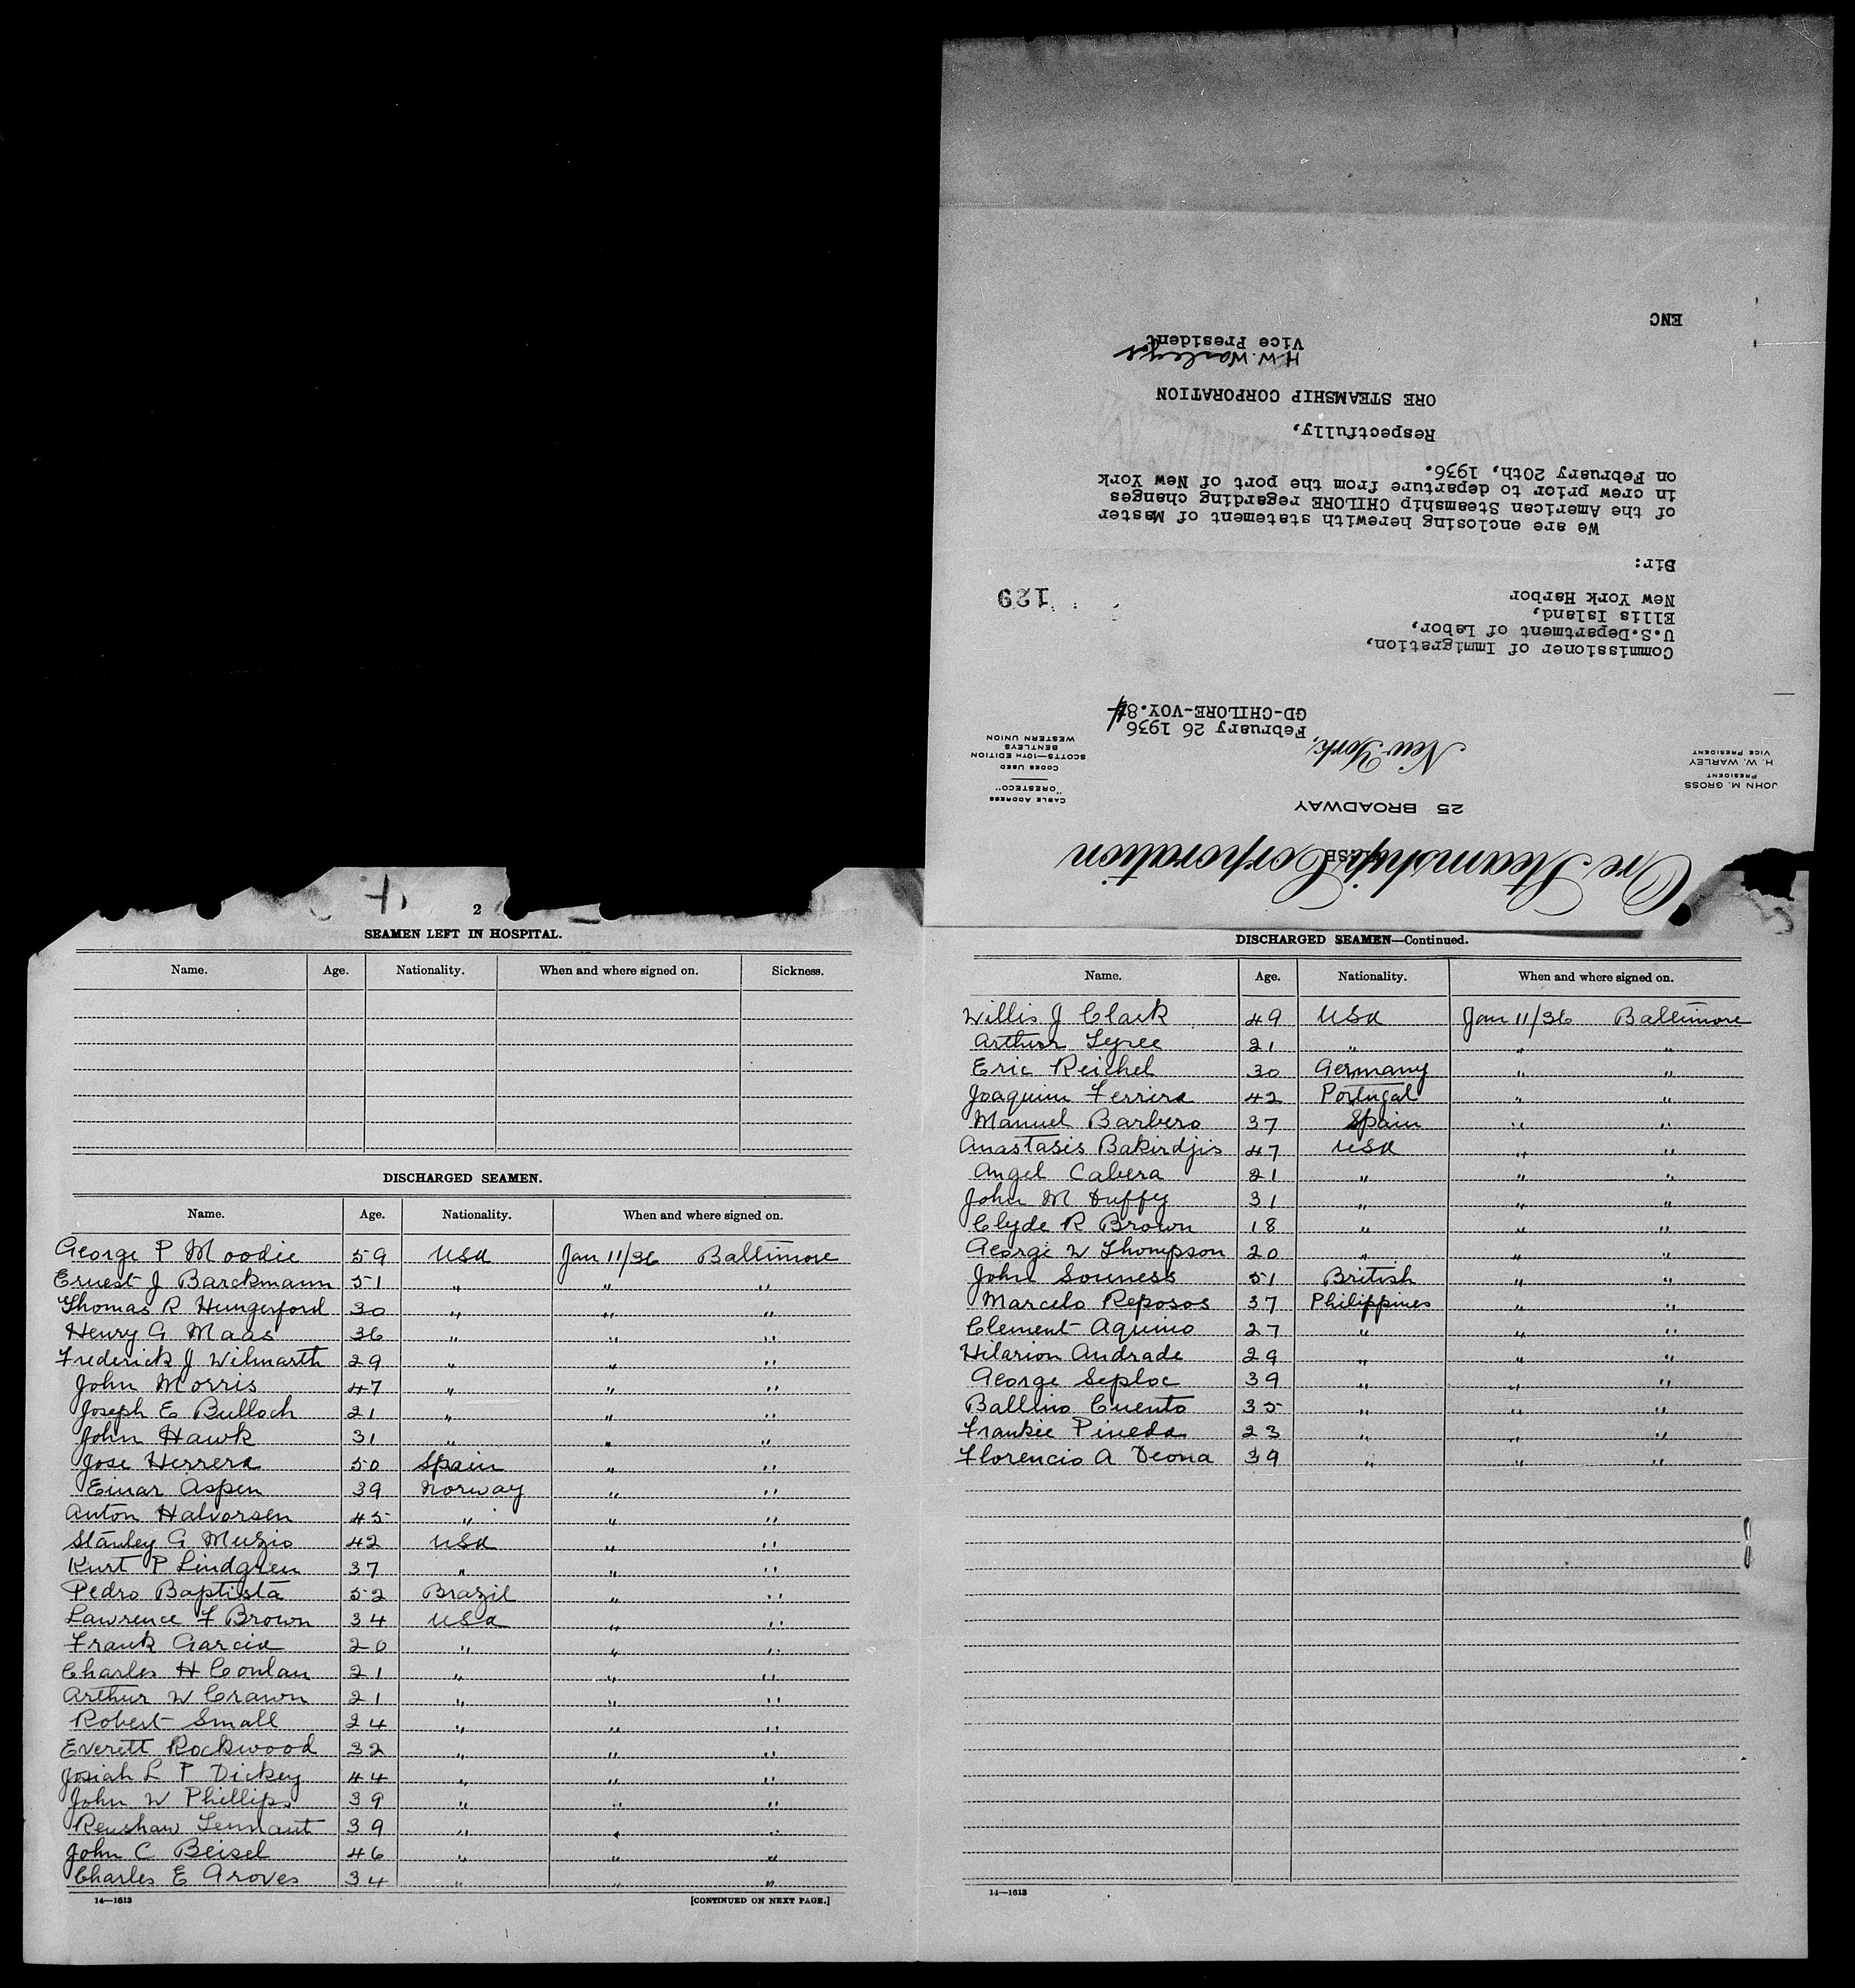 2
SEAMEN LEFT IN HOSPITAL.
Name. Age. Nationality. When and where signed on. Sickness.
DISCHARGED SEAMEN.
Name. Age. Nationality. When and where signed on.
George P Moodie 59 USA Jan 11/36 Baltimore
Ernest J Barckmann 51 " " "
Thomas R Hungerford 30 " " "
Henry G Maas 36 " " "
Frederick J Wilmarth 29 " " "
John Morris 47 " " "
Joseph E Bulloch 21 " " "
John Hawk 31 " " "
Jose Herrera 50 Spain " "
Einar Aspen 39 Norway " "
Anton Halvorsen 45 " " "
Stanley G Muzio 42 USA " "
Kurt P Lindgren 37 " " "
Pedro Baptista 52 Brazil " "
Lawrence F Brown 34 USA " "
Frank Garcia 20 " " "
Charles H Conlan 21 " " "
Arthur W Crawn 21 " " "
Robert Small 24 " " "
Everett Rockwood 32 " " "
Josiah L P Dickey 44 " " "
John W Phillips 39 " " "
Renshaw Tennant 39 " " "
John C Beisel 46 " " "
Charles E Groves 34 " " "
14—1613 [CONTINUED ON NEXT PAGE.]
Ore Steamship Corporation
25 BROADWAY
JOHN M. GROSS
PRESIDENT
H. W. WARLEY
VICE PRESIDENT
New York,
CABLE ADDRESS
"ORESTECO"
CODES USED
SCOTTS—10TH EDITION
BENTLEYS
WESTERN UNION
February 26 1936
GD-CHILORE-VOY.84
Commissioner of Immigration,
U.S.Department of Labor,
Ellis Island,
New York Harbor
129
Sir:
We are enclosing herewith statement of Master
of the American Steamship CHILORE regarding changes
in crew prior to departure from the port of New York
on February 20th, 1936.
Respectfully,
ORE STEAMSHIP CORPORATION
H.W. Warley
Vice President
ENC
DISCHARGED SEAMEN—Continued.
Name. Age. Nationality. When and where signed on.
Willis J Clark 49 USA Jan 11/36 Baltimore
Arthur 21 " " "
Eric Reichel 30 Germany " "
Joaquim Ferrira 42 Portugal " "
Manuel Barbero 37 Spain " "
Anastasis Bakirdjis 47 USA " "
Angel Cabera 21 " " "
John M Duffy 31 " " "
Clyde R Brown 18 " " "
George W Thompson 20 " " "
John Souness 51 British " "
Marcelo Reposos 37 Philippines " "
Clement Aquino 27 " " "
Hilarion Andrade 29 " " "
George Seploc 39 " " "
Ballino Cuento 35 " " "
Frankie Pineda 23 " " "
Florencio A Deona 39 " " "
14—1613